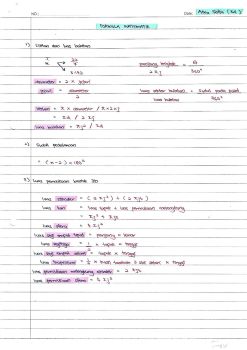 NO:
DATE:
FORMULA MATEMATIK
1) Lilitan dan luas bulatan
π 22/7
3.142
panjang lengkok / 2πj = θ / 360°
diameter = 2 × jejari
jejari = diameter / 2
luas sektor bulatan / luas bulatan = sudut pada pusat / 360°
lilitan = π × diameter / π × 2 × j
= πd / 2πj
luas bulatan = πj² / πd
2) Sudut pedalaman
= (n - 2) × 180°
3) luas permukaan bentuk 3D
luas silinder = (2πj²) + (2πjt)
luas kon = luas tapak + luas permukaan melengkung
= πj² + πjs
luas sfera = 4πj²
luas segi empat tepat = panjang × lebar
luas segitiga = 1/2 × tapak × tinggi
luas segi empat selari = tapak × tinggi
luas trapezium = 1/2 ×
luas permukaan melengkung silinder = 2πjt
luas permukaan sfera = 4πj²